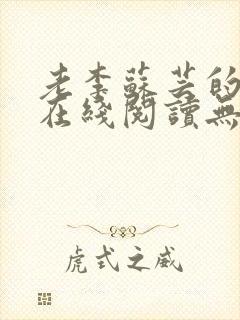 老李蘇芸的
在綫閱讀無
虎式之威